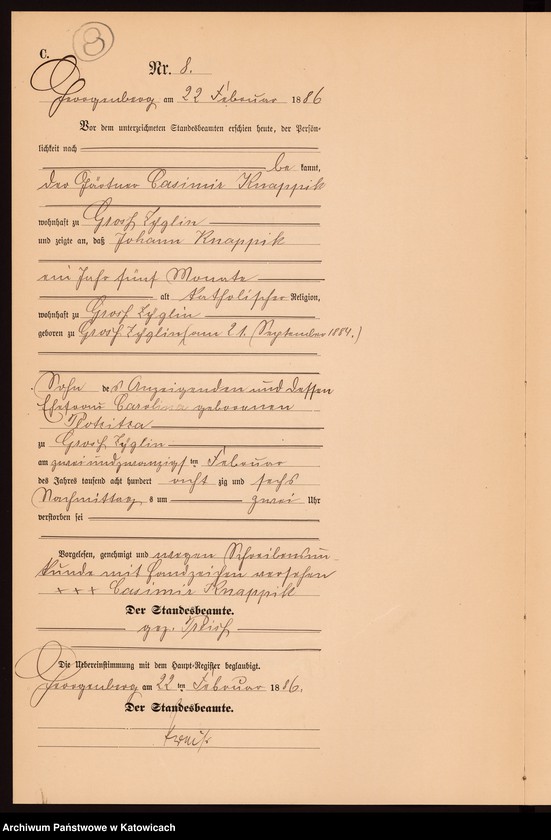 C.
8
Nr. 8.
Georgenberg am 22 Februar 1886
Vor dem unterzeichneten Standesbeamten erschien heute, der Persön-
lichkeit nach
be kannt,
der Gärtner Casimir Knappik
wohnhaft zu Groß Zyglin
und zeigte an, daß Johann Knappik
ein Jahr fünf Monate
alt katholischer Religion,
wohnhaft zu Groß Zyglin
geboren zu Groß Zyglin (am 21. September 1884.)
Sohn des Anzeigenden und dessen
Ehefrau Carolina geborenen
zu Groß Zyglin
am zweiundzwanzigsten Februar
des Jahres tausend acht hundert acht zig und sechs
Nachmittags um zwei Uhr
verstorben sei
Vorgelesen, genehmigt und wegen Schreibensun-
kunde mit Handzeichen versehen
+++ Casimir Knappik
Der Standesbeamte.
gez.
Die Uebereinstimmung mit dem Haupt-Register beglaubigt.
Georgenberg am 22 ten Februar 1886.
Der Standesbeamte.
Archiwum Państwowe w Katowicach